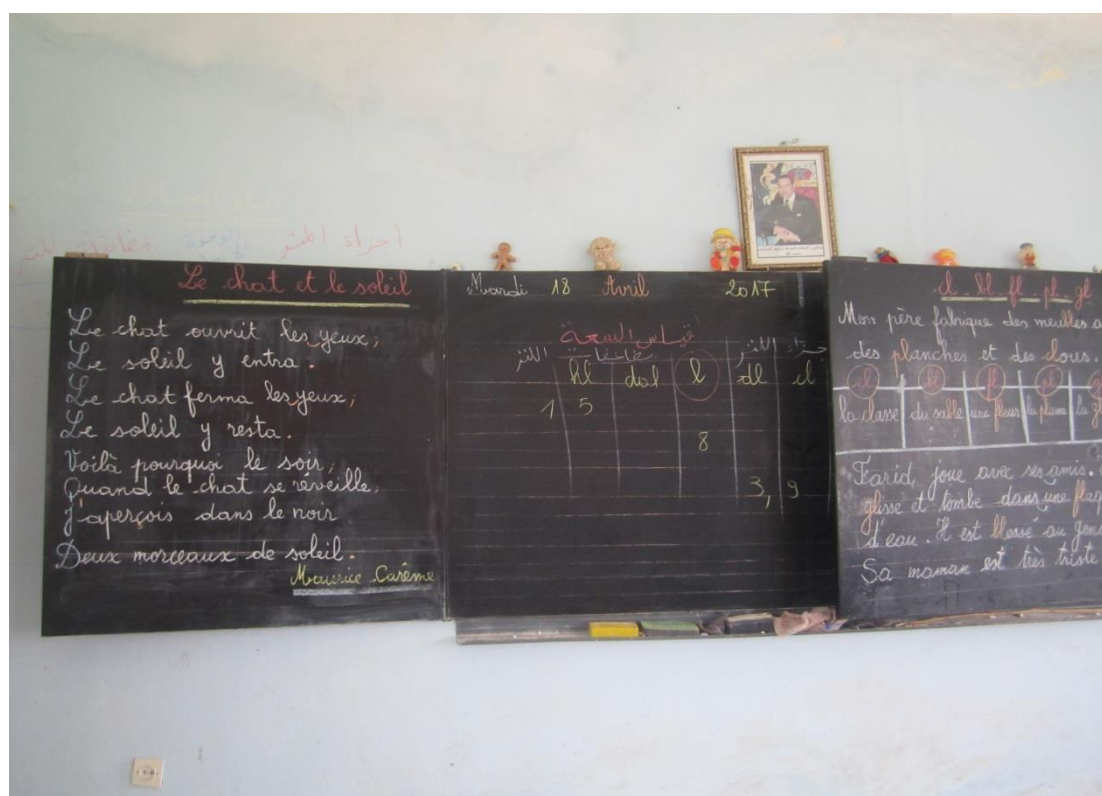 أجزاء المتر الوحدة مضاعفات المتر
Le chat et le soleil
Le chat ouvrit les yeux,
Le soleil y entra.
Le chat ferma les yeux,
Le soleil y resta.
Voilà pourquoi le soir,
Quand le chat se réveille,
J'aperçois dans le noir
Deux morceaux de soleil.
Maurice Carême
Mardi 18 Avril 2017
قياس السعة
أجزاء اللتر مضاعفات اللتر
hl dal l dl cl
1 5
8
3, 9
cl bl fl pl gl
Mon père fabrique des meubles a
des planches et des clous.
cl bl fl pl g
la classe du sable une fleur la plume la gl
Farid joue avec ses amis.
glisse et tombe dans une flaq
d'eau. Il est blessé au gen
Sa maman est très triste